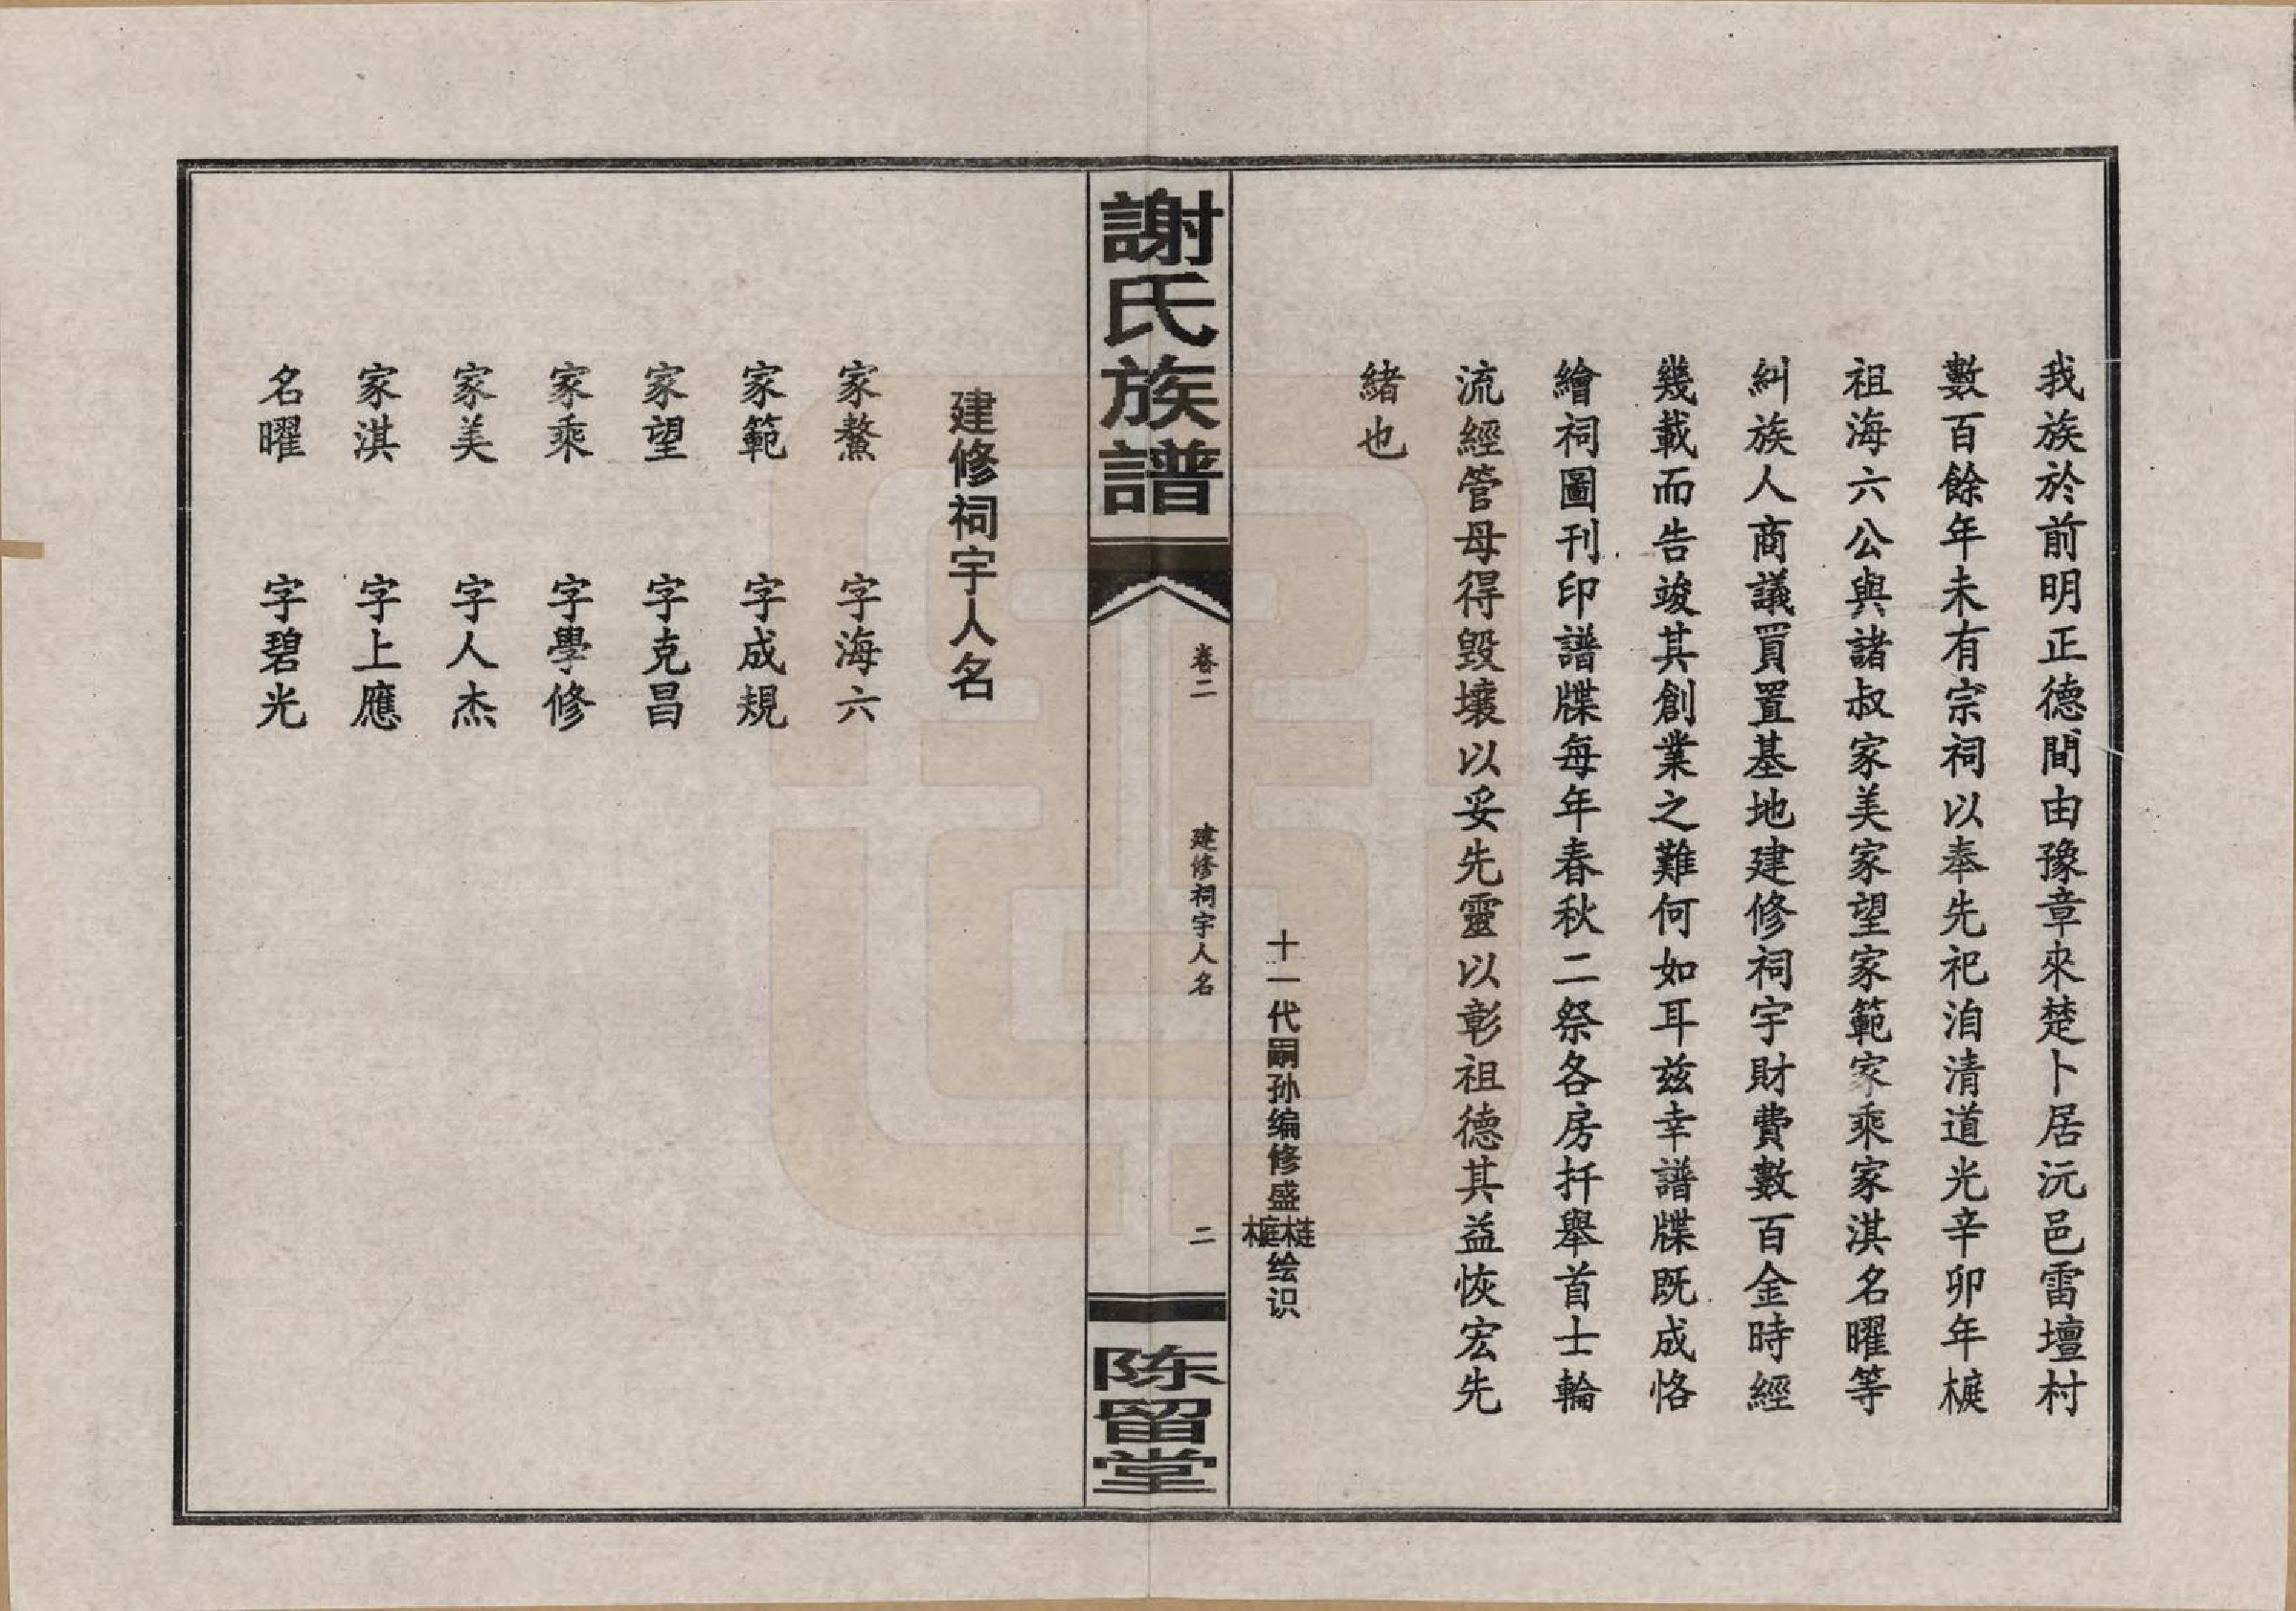 我族於前明正德間由豫章來楚卜居沅邑雷壇村
數百餘年未有宗祠以奉先祀洎清道光辛卯年榳
祖海六公與諸叔家美家望家範家乘家淇名曜等
糾族人商議買置基地建修祠宇財費數百金時經
幾載而告竣其創業之難何如耳茲幸譜牒既成恪
繪祠圖刊印譜牒每年春秋二祭各房扦舉首士輪
流經管母得毀壞以妥先靈以彰祖德其益恢宏先
緒也
十一代嗣孙编修盛榳梿绘识
謝氏族譜
卷二
建修祠宇人名
二
陈留堂
建修祠宇人名
家鰲 字海六
家範 字成規
家望 字克昌
家乘 字學修
家美 字人杰
家淇 字上應
名曜 字碧光